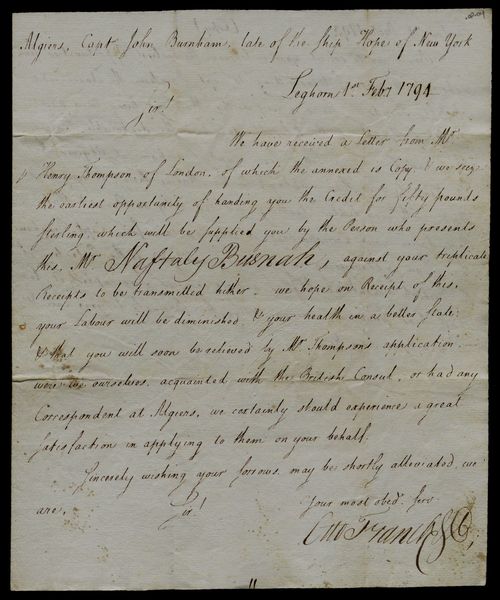 Algiers, Capt John Burnham, late of the Ship Hope of New York
Leghorn 1st Feby 1794
Sir!
We have received a Letter from Mr
Henry Thompson, of London, of which the annexed is Copy, & we seize
the earliest opportunity of handing you the Credit for fifty pounds
Sterling, which will be supplied you by the Person who presents
this, Mr Naftaly Busnah, against your triplicate
Receipts to be transmitted hither — we hope on Receipt of this,
your Labour will be diminished & your health in a better State:
& that you will soon be relieved by Mr Thompson's application.
were we ourselves, acquainted with the British Consul, or had any
Correspondent at Algiers, we certainly should experience a great
satisfaction in applying to them on your behalf.
Sincerely wishing your sorrows, may be shortly alleviated, we
are, Sir!
Your most obedt Serv
Otto Franck & Co,